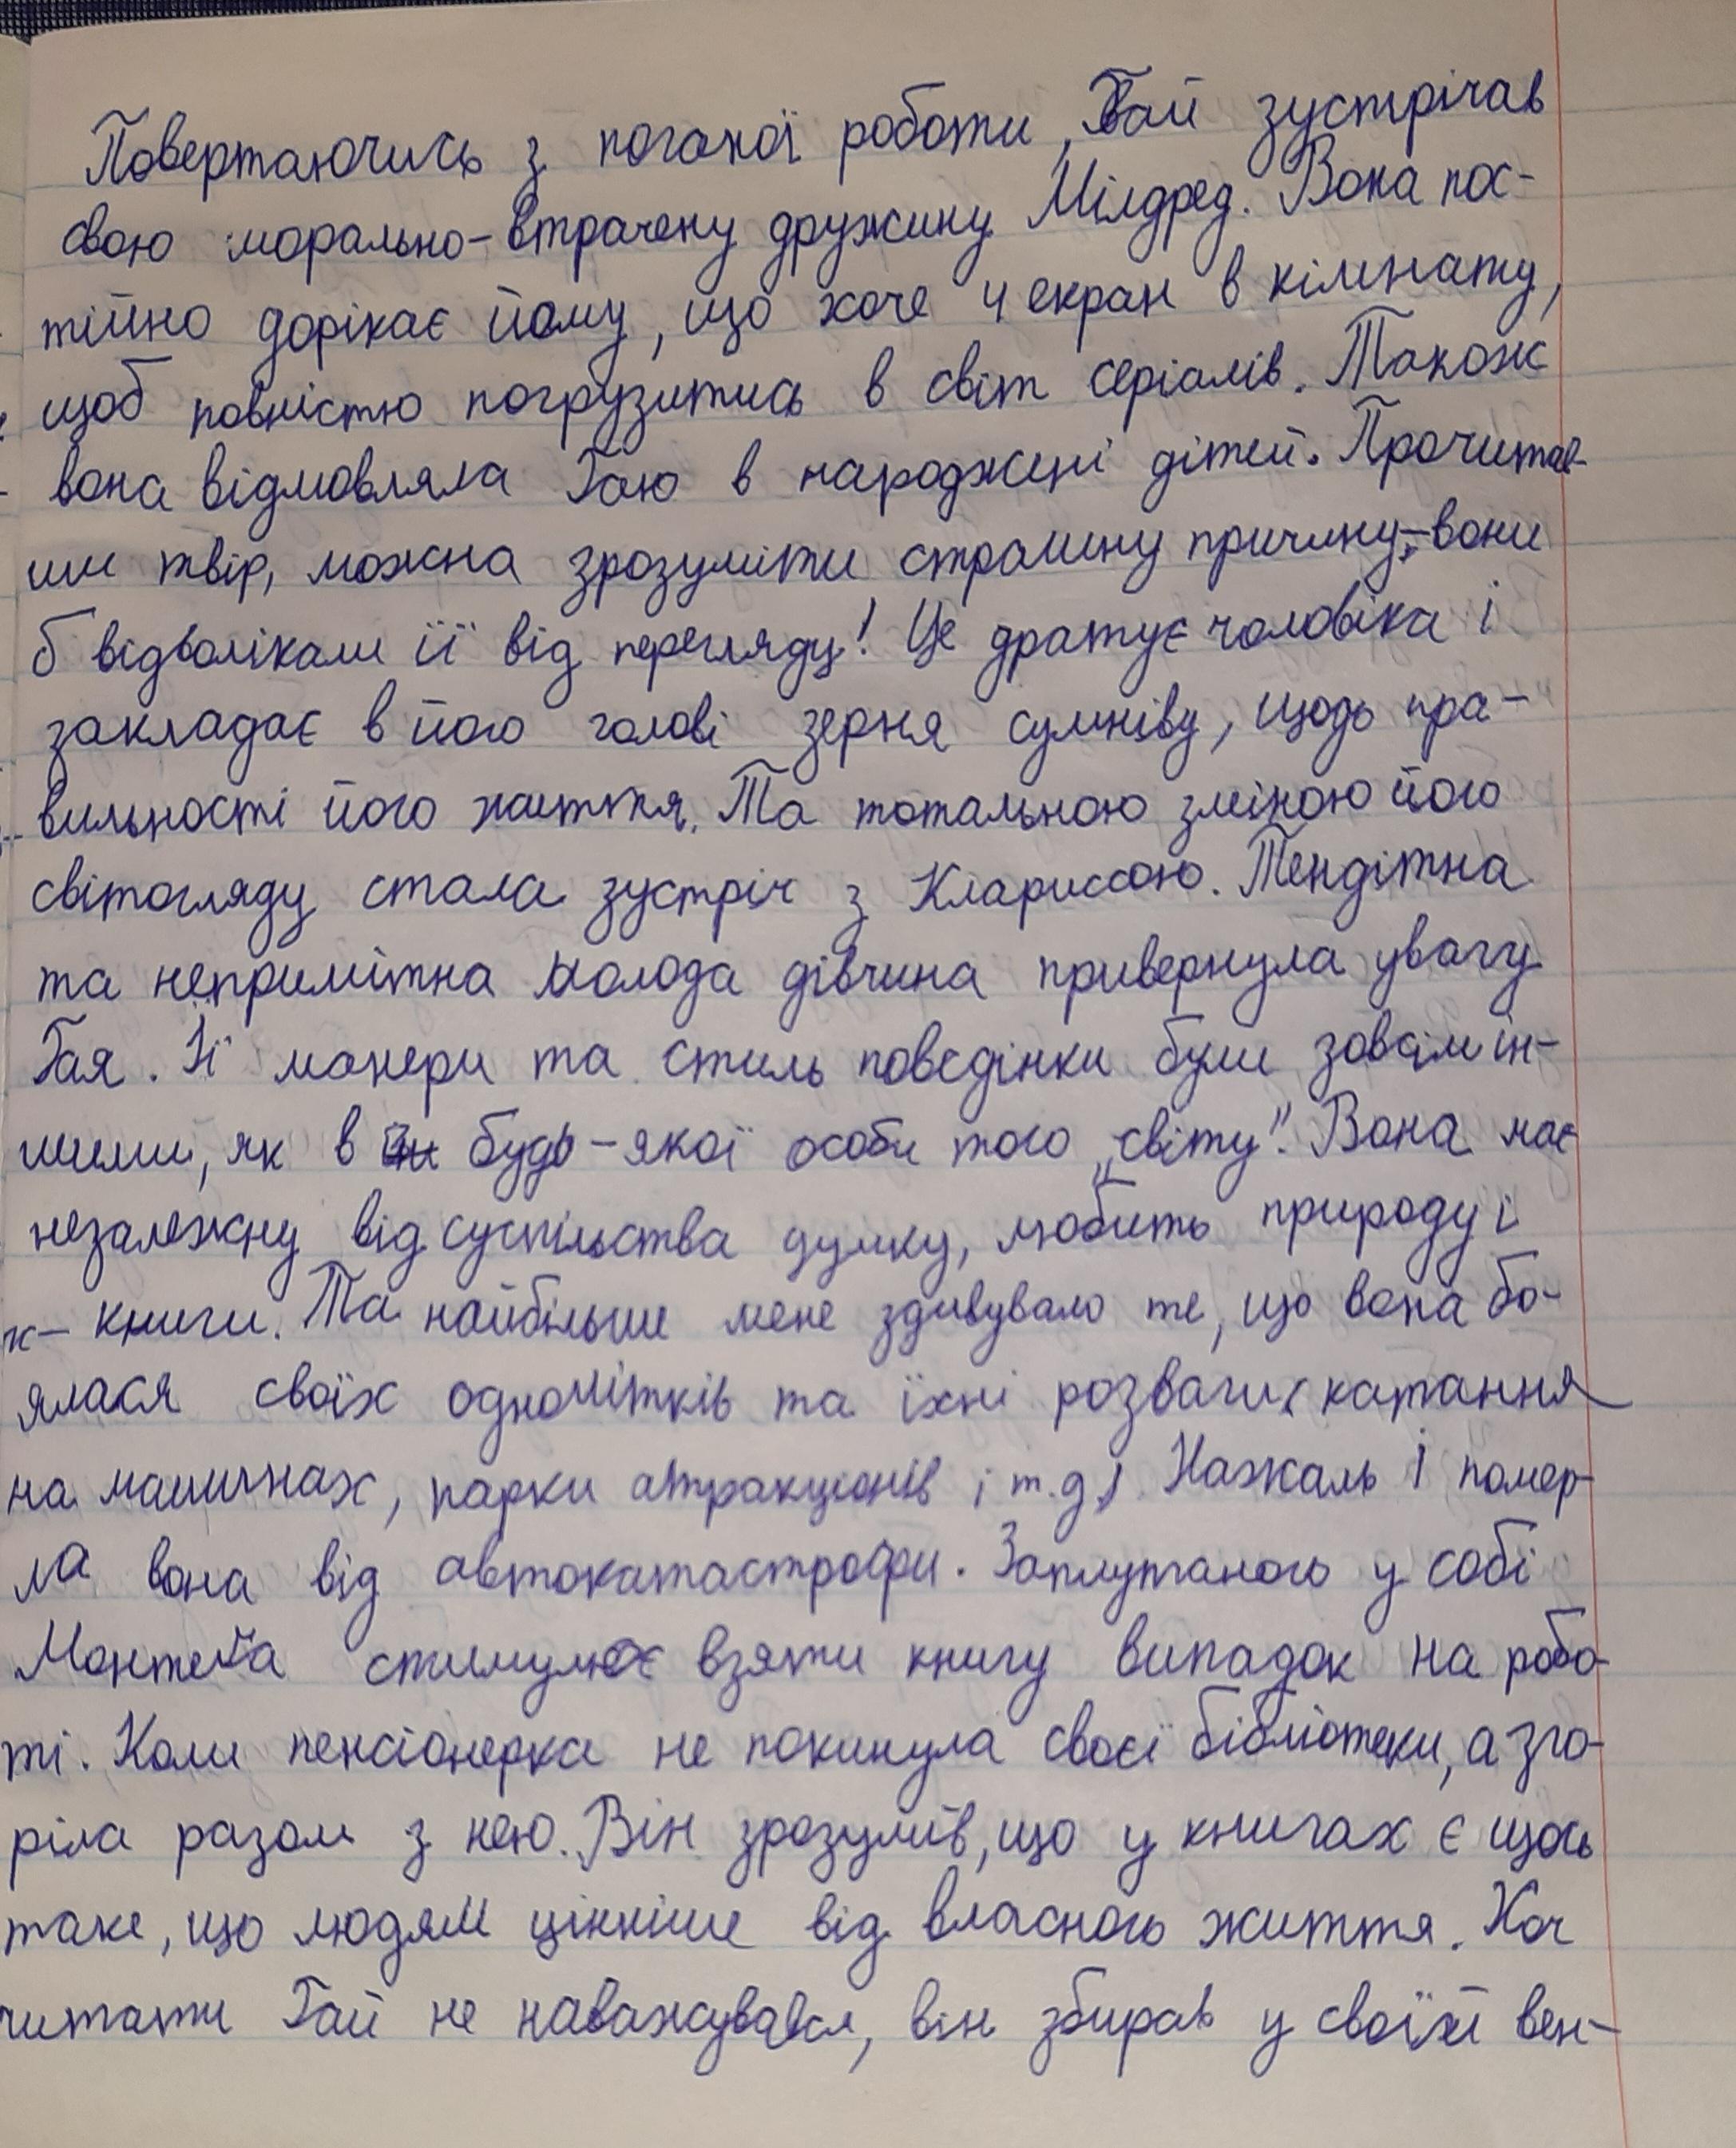 Повертаючись з поганої роботи, Гай зустрічав
свою морально-втрачену дружину Мілдред. Вона пос-
тійно дорікає йому, що хоче 4 екран в кімнату,
щоб повністю погрузитись в світ серіалів. Також
вона відмовляла Гаю в народжені дітей. Прочитав-
ши твір, можна зрозуміти страшну причину,-вони
б відволікали її від перегляду! Це дратує чоловіка і
закладає в його голові зерня сумніву, щодо пра-
вильності його життя. Та тотальною зміною його
світогляду стала зустріч з Клариссою. Тендітна
та непримітна молода дівчина привернула увагу
Гая. Її манери та стиль поведінки були зовсім ін-
шими, як в будь-якої особи того „світу". Вона має
незалежну від суспільства думку, любить природу і
книги. Та найбільше мене здивувало те, що вона бо-
ялася своїх однолітків та їхні розваги( катання
на машинах, парки атракціонів і т.д.) Нажаль і помер-
ла вона від автокатастрофи. Заплутаного у собі
Монтега стимулює взяти книгу випадок на робо-
ті. Коли пенсіонерка не покинула своєї бібліотеки, а зго-
ріла разом з нею. Він зрозумів, що у книгах є щось
таке, що людям цінніше від власного життя. Хоч
читати Гай не наважувався, він збирав у своїй вен-